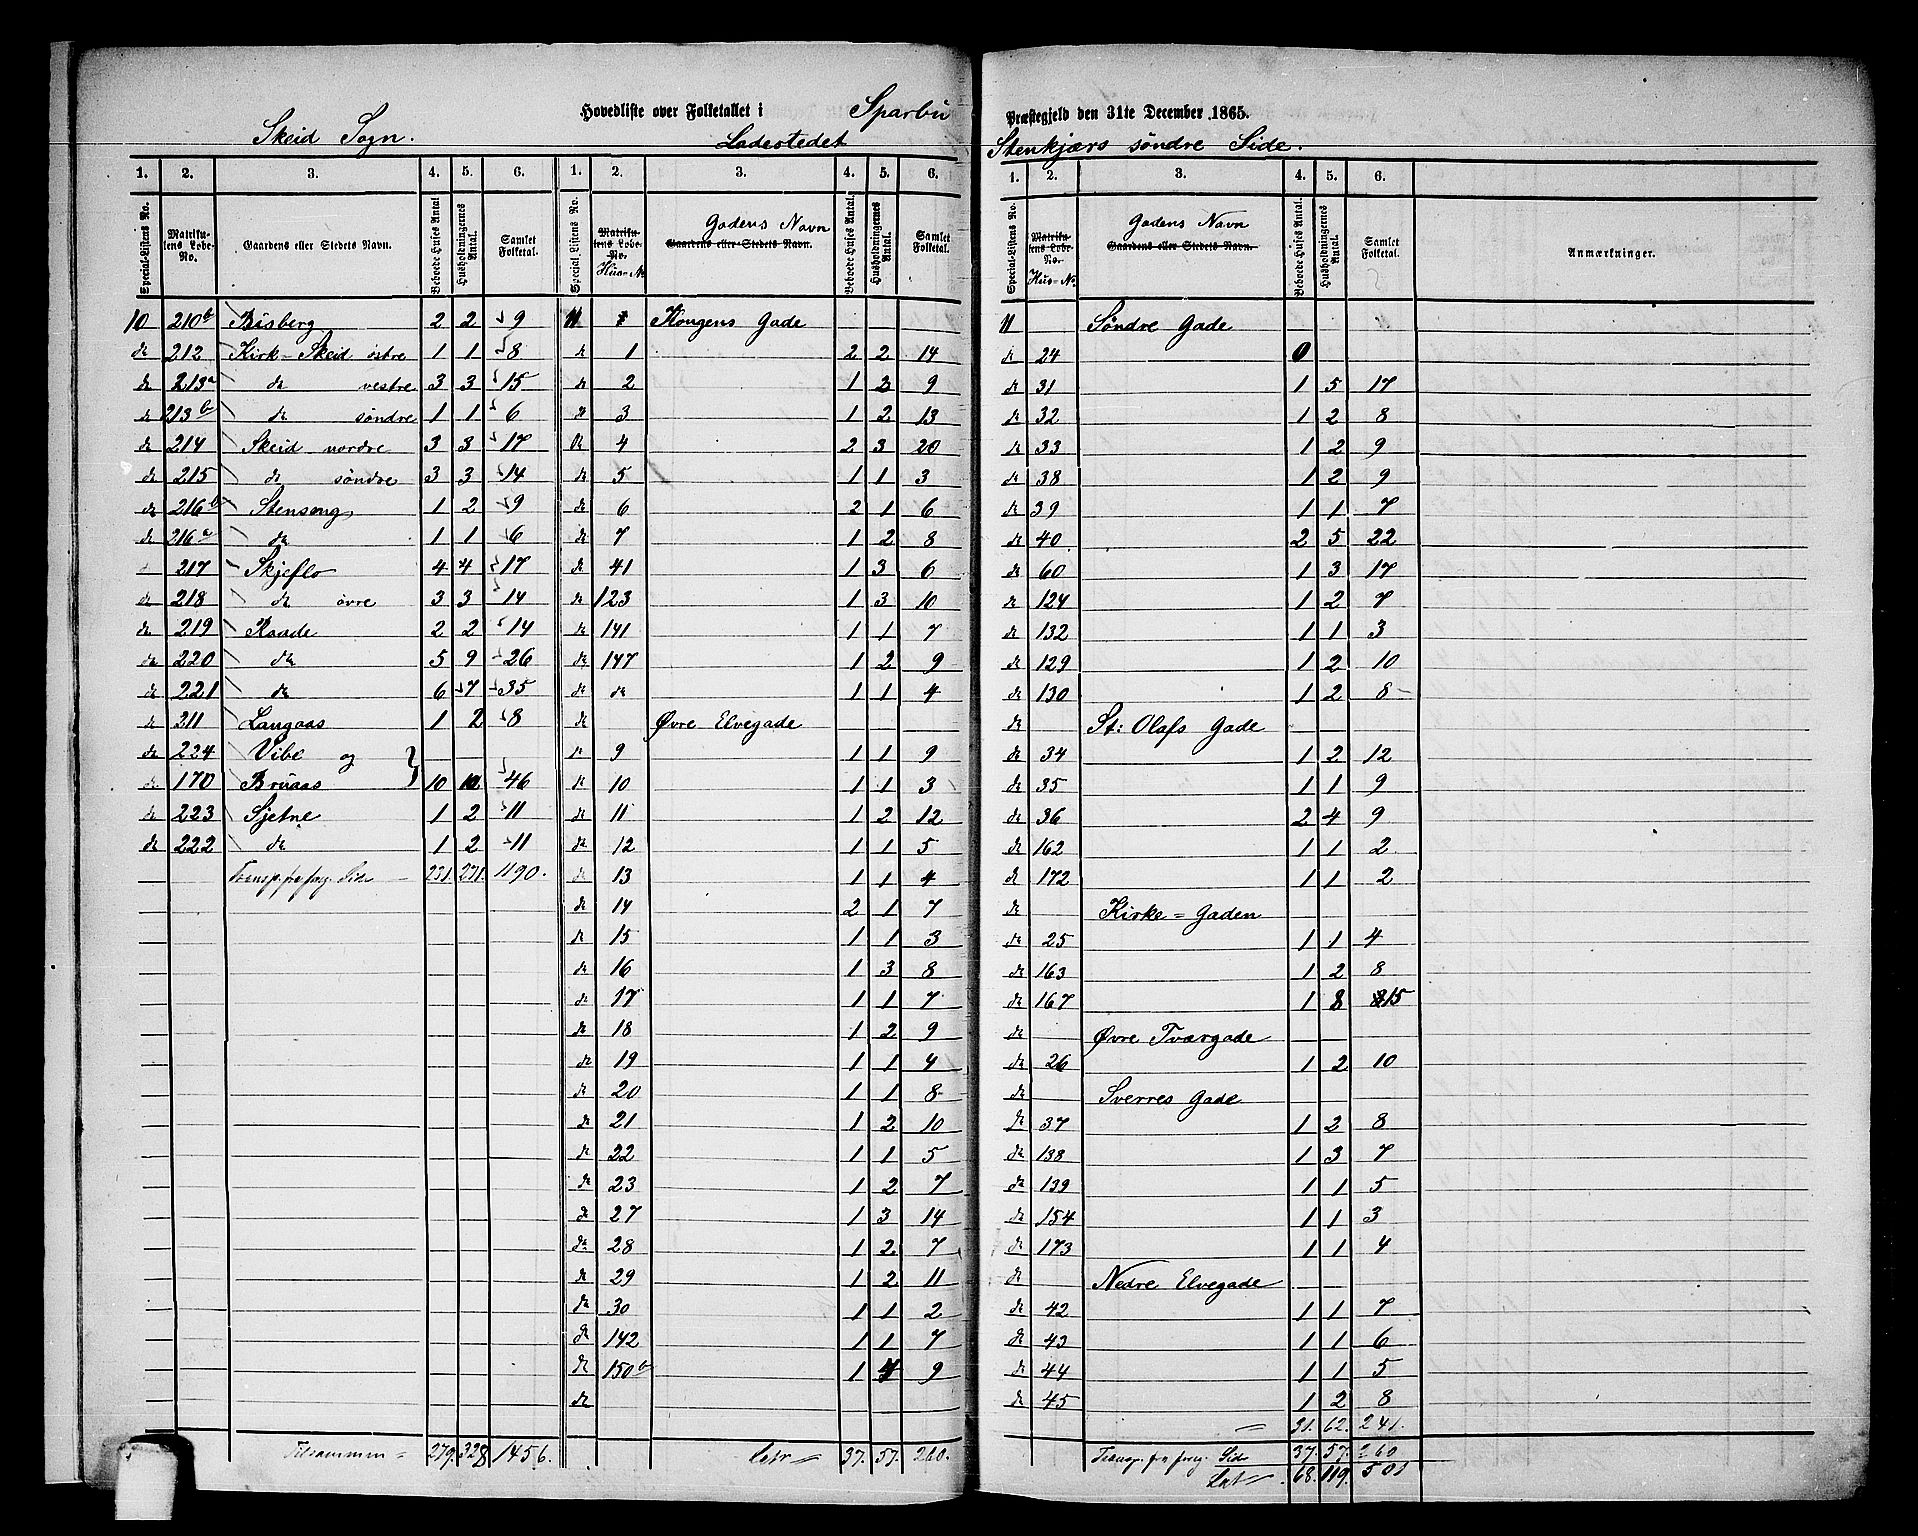 Hovedliste over Folketallet i Sparbu Præstegjeld den 31te December 1865.
Skeid Sogn. Ladestedet Stenkjærs søndre Side.
1. 2. 3. 4. 5. 6.
Special-Listens No. Matrikulens Løbe-No. Gaardens eller Stedets Navn. Beboede Huses Antal Husholdningernes Antal. Samlet Folketal.
10 210b Bisberg 2 2 9
do 212 Kirk-Skeid østre 1 1 8
do 213a do vestre 3 3 15
do 213b do søndre 1 1 6
do 214 Skeid nordre 3 3 17
do 215 do søndre 3 3 14
do 216b Stenseng 1 2 9
do 216a do 1 1 6
217 Skjeflo 4 4 17
do 218 do øvre 3 3 14
do 219 Raade 2 2 14
do 220 do 5 9 26
do 221 do 6 7 35
do 211 Langaas 1 2 8
do 224 Vibe og
do 170 Bruaas } 10 10 46
do 223 Sjetne 1 2 11
do 222 do 1 2 11
Transp. fra foreg. Side 231. 271. 1190.
Tilsammen 279. 328 1456.
1. 2. 3. 4. 5. 6.
Special Listens No. Matrikulens Løbe-No. Huus-No Gaardens eller Stedets Navn. Gadens Navn Beboede Huses Antal. Husholdningernes Antal. Samlet Folketal.
11 Kongens Gade
do 1 2 2 14
do 2 1 3 9
do 3 1 2 13
do 4 2 3 20
do 5 1 1 3
do 6 2 1 6
do 7 1 2 8
do 41 1 3 6
do 123 1 3 10
do 141 1 1 7
do 147 1 2 9
do do 1 1 4
do Øvre Elvegade
do 9 1 1 9
do 10 1 1 3
do 11 1 2 12
do 12 1 1 5
do 13 1 1 4
do 14 2 1 7
do 15 1 1 3
do 16 1 3 8
do 17 1 1 7
do 18 1 2 9
do 19 1 1 4
do 20 1 1 8
do 21 1 2 10
do 22 1 1 5
do 23 1 2 7
do 27 1 3 14
do 28 1 2 7
do 29 1 2 11
do 30 1 1 2
do 142 1 1 7
do 150b 1 4 9
do
Latr 37. 57. 260.
1. 2. 3. 4. 5. 6.
Special-Listens No. Matrikulens Løbe-No. Huus-No. Gaardens eller Stedets Navn. Gadens Navn Beboede Huses Antal. Husholdningernes Antal. Samlet Folketal. Anmærkninger.
11 Søndre Gade
do 24 0
do 31 1 5 17
do 32 1 2 8
do 33 1 2 9
do 38 1 2 9
do 39 1 1 7
do 40 2 5 22
do 60 1 3 17
do 124 1 2 7
do 132 1 1 3
do 129 1 2 10
do 130 1 2 8
do St: Olafs Gade
do 34 1 2 12
do 35 1 1 9
do 36 2 4 9
do 162 1 1 2
do 172 1 1 2
do Kirke-Gaden
do 25 1 1 4
do 163 1 2 8
do 167 1 8 15
do Øvre Tværgade
do 26 1 2 10
do Sverres Gade
do 37 1 2 8
do 138 1 3 7
do 139 1 1 5
do 154 1 1 3
do 173 1 1 4
do Nedre Elvegade
do 42 1 1 7
do 43 1 1 6
do 44 1 1 5
do 45 1 2 8
31. 62. 241.
Transp. fra foreg. Side 37. 57. 260
Lat 68. 119. 501